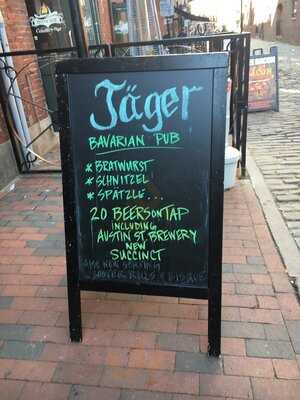 Jäger
BAVARIAN PUB
* BRATWURST
* SCHNITZEL
* SPÄTZLE...
20 BEERS ON TAP
INCLUDING
AUSTIN ST. BREWERY
NEW
SUCCINCT
ALSO NOW SERVING